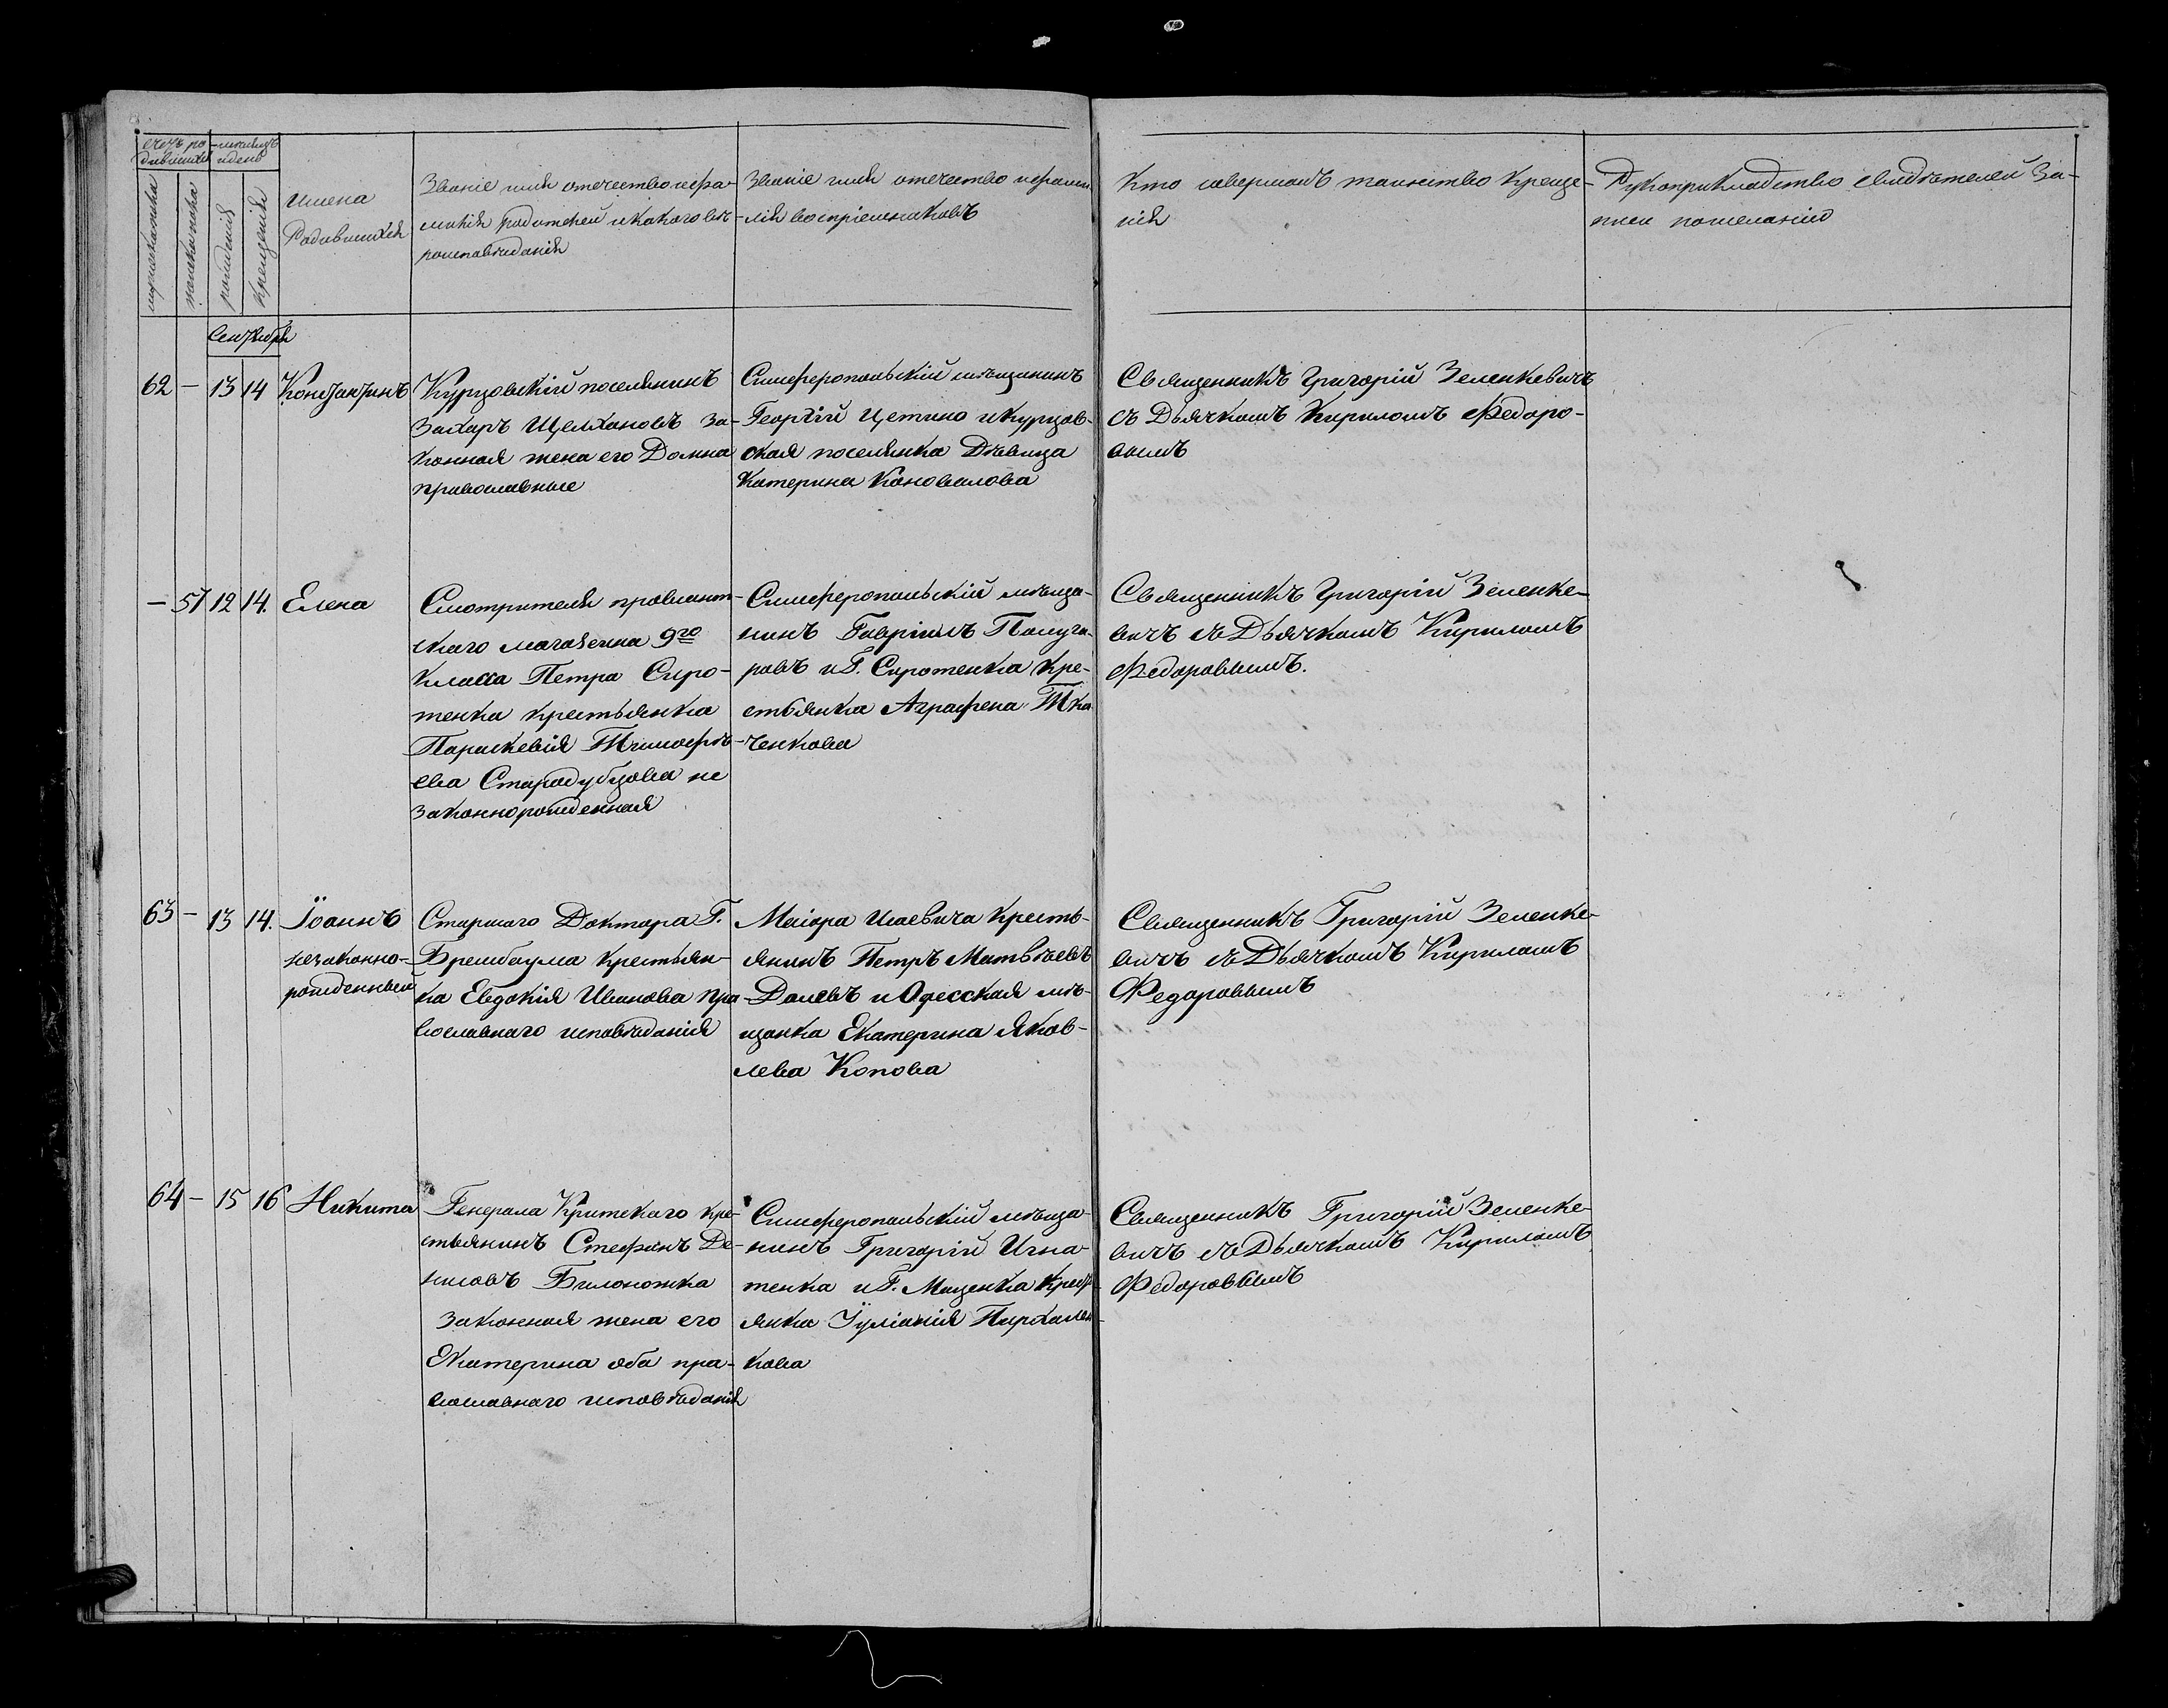 счетъ ро-
дившихся
мѣсяцъ
и день
мужеска пола
женска пола
рожденія
крещенія
Имена
Родившихся
Званіе имя отечество и фа-
милія родителей и какого вѣ-
роисповѣданія
Званіе имя отечество и фами-
лія воспріемниковъ
Кто совершалъ таинство Креще-
нія
Рукоприкладство свидѣтелей За-
писи по желанію
Сентября
62 – 13 14 Константинъ
Курцовскій поселянинъ
Захаръ Щелкановъ за-
конная жена его Домна
православные
Симферопольскій мѣщанинъ
Георгій Цетино и Курцов-
ская поселянка Дѣвица
Катерина Коновалова
Священникъ Григорій Зеленкевичъ
съ Дьячкомъ Кириломъ Федоро-
вымъ
– 57 12 14. Елена
Смотрителя провіант-
скаго магазеина 9го
класса Петра Сиро-
тенка крестьянка
Параскевія Тимофѣ-
ева Стародубцова не
законнорожденная
Симферопольскій мѣща-
нинъ Гавріилъ Полуга-
ровъ и Г. Сиротенка Кре-
стьянка Аграфена Тка-
ченкова
Священникъ Григорій Зеленке-
вичъ съ Дьячкомъ Кириломъ
Федоровымъ.
63 – 13 14. Іоаннъ
незаконно-
рожденный
Старшаго Доктора Г.
Брембаума крестьян-
ка Евдокія Иванова пра-
вославнаго исповѣданія
Маіора Исаевича кресть-
янинъ Петръ Матвѣевъ
Далевъ и Одесская мѣ-
щанка Екатерина Яков-
лева Копова
Священникъ Григорій Зеленке-
вичъ съ Дьячкомъ Кириломъ
Федоровымъ
64 – 15 16 Никита
Генерала Критскаго кре-
стьянинъ Стефанъ Де-
нисовъ Билоножка
законная жена его
Екатерина оба пра-
вославнаго исповѣданія
Симферопольскій мѣща-
нинъ Григорій Игна-
тенка и Г. Маценка крест-
янка Іуліанія Пархомен-
кова
Священникъ Григорій Зеленке-
вичъ съ Дьячкомъ Кириломъ
Федоровымъ